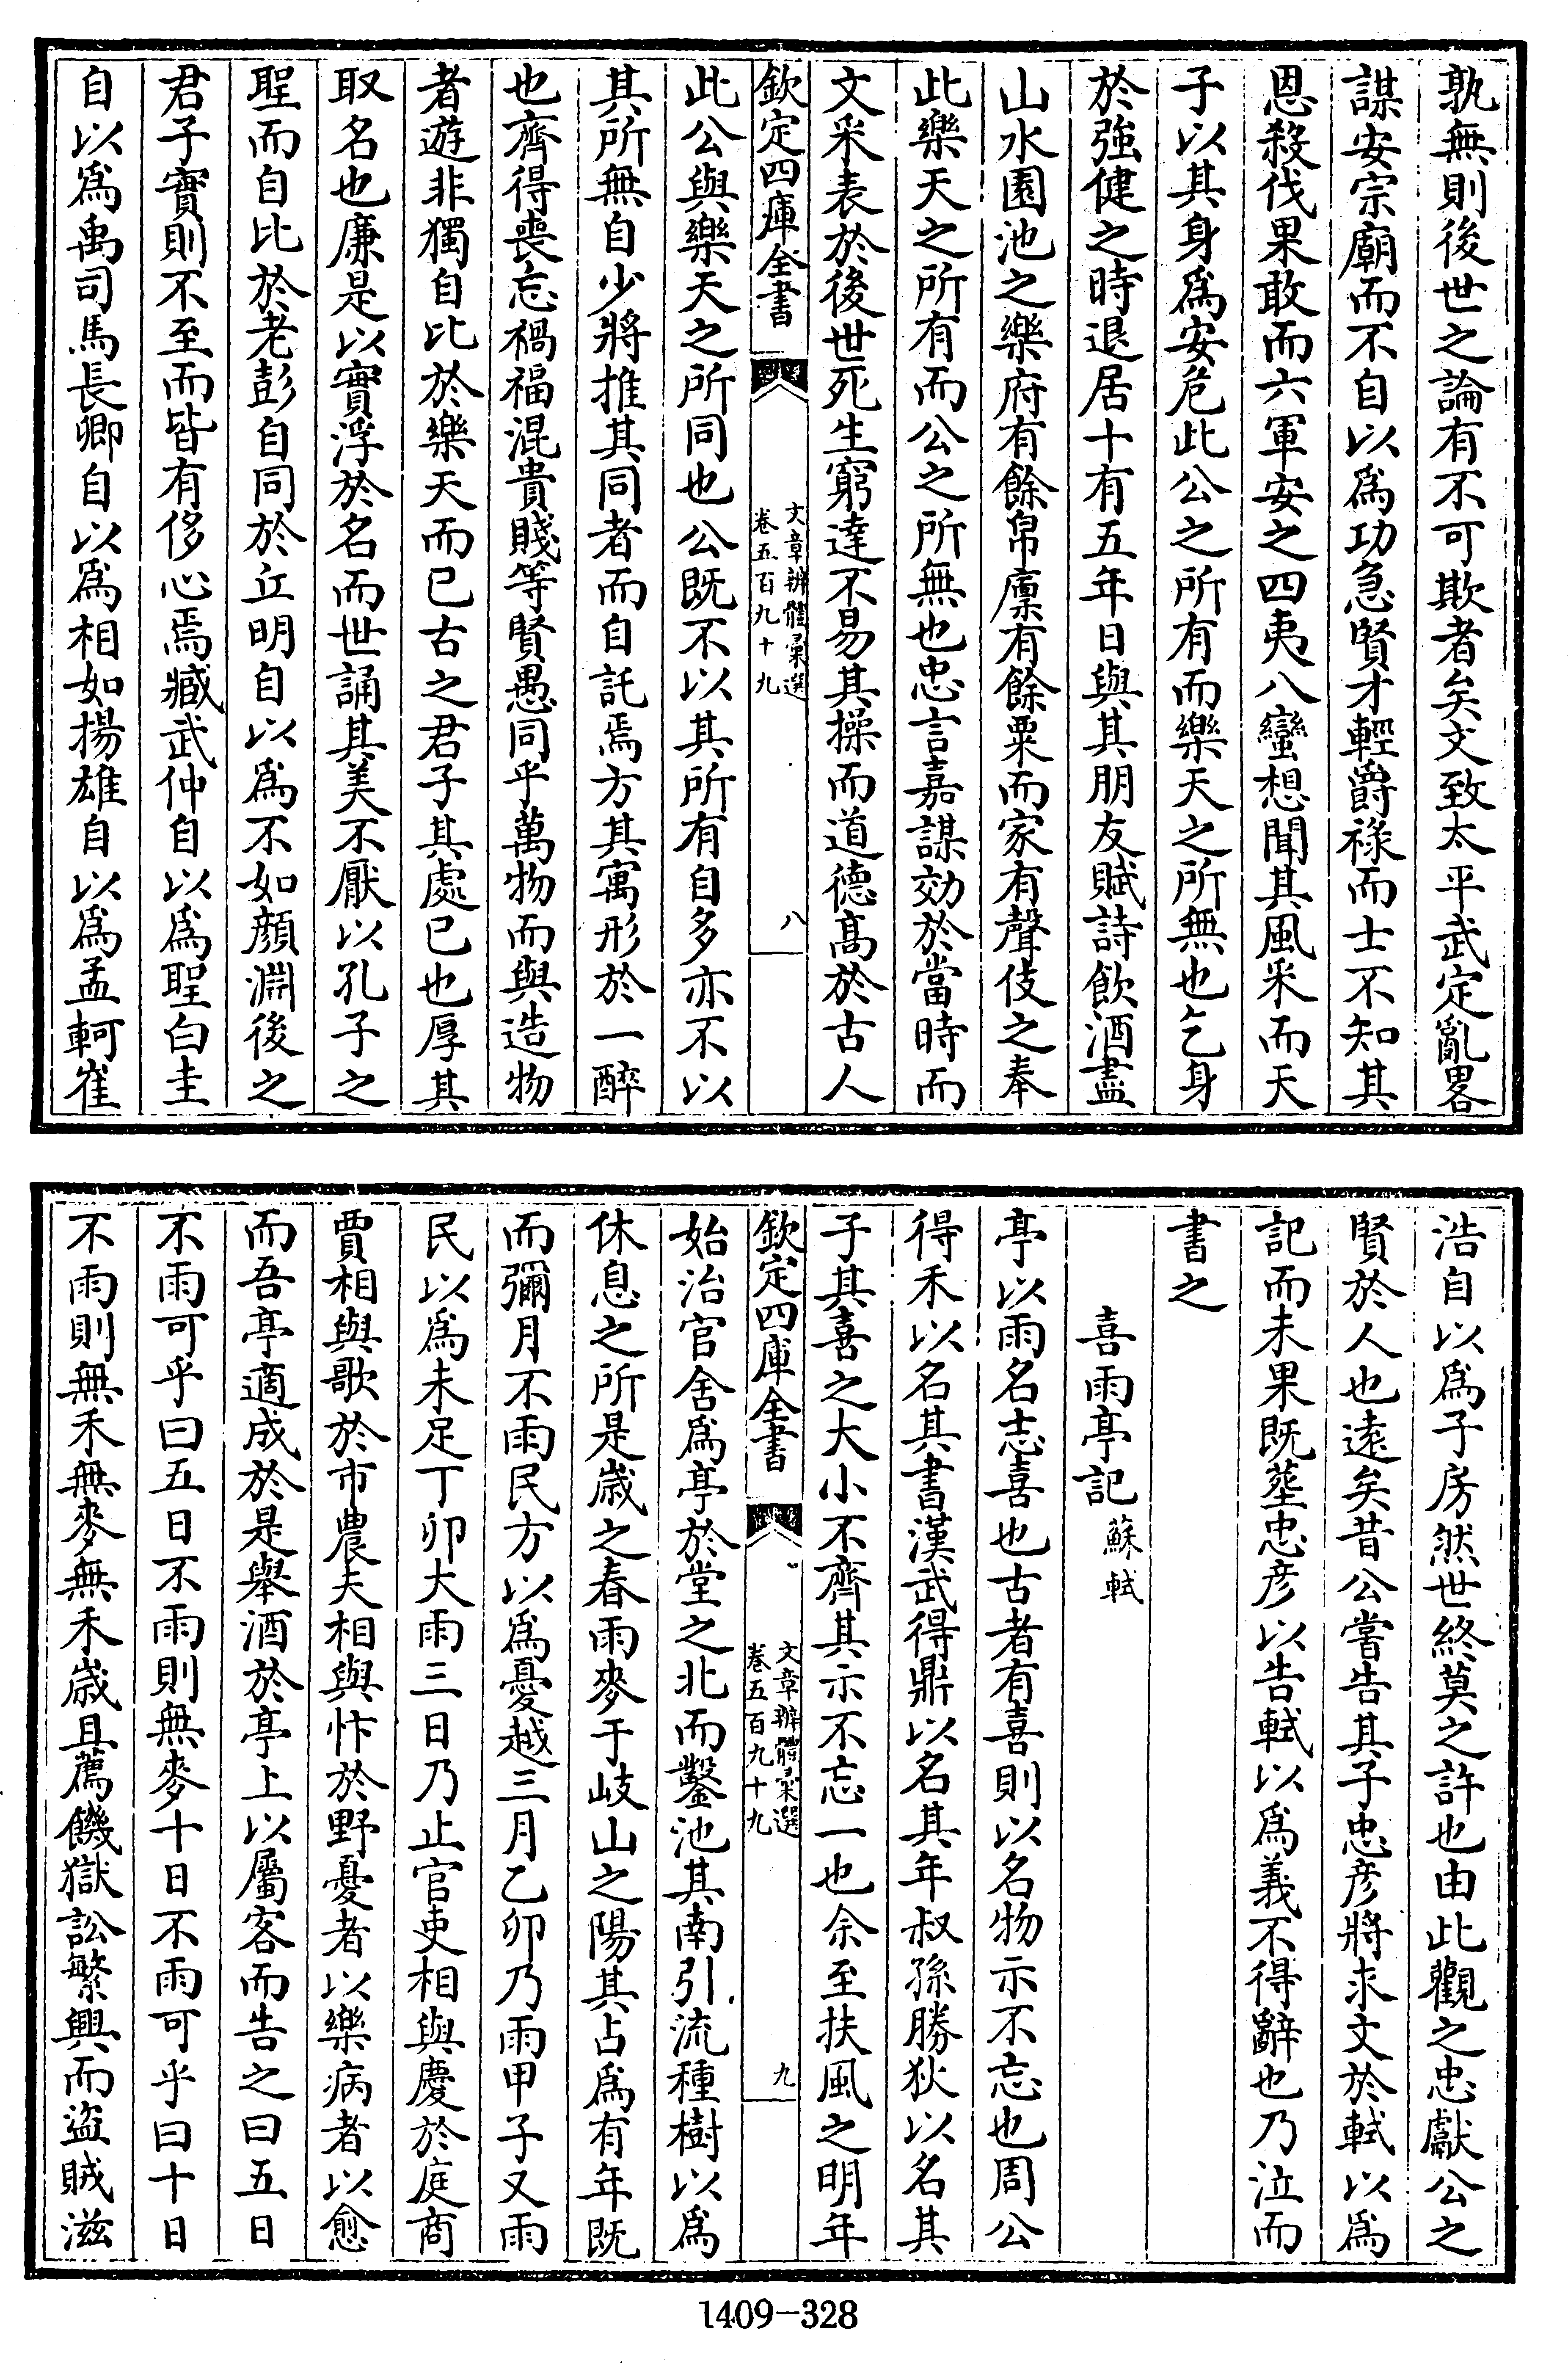 孰無則後世之論有不可欺者矣文致太平武定亂畧
謀安宗廟而不自以爲功急賢才輕爵祿而士不知其
恩殺伐果敢而六軍安之四夷八蠻想聞其風采而天
子以其身爲安危此公之所有而樂天之所無也乞身
於強健之時退居十有五年日與其朋友賦詩飲酒盡
山水園池之樂府有餘帛廪有餘粟而家有聲伎之奉
此樂天之所有而公之所無也忠言嘉謀効於當時而
文采表於後世死生窮達不易其操而道德髙於古人
欽定四庫全書
文章辨體彙選
卷五百九十九
八
此公與樂天之所同也公既不以其所有自多亦不以
其所無自少將推其同者而自託焉方其寓形於一醉
也齊得喪忘禍福混貴賤等賢愚同乎萬物而與造物
者遊非獨自比於樂天而已古之君子其處已也厚其
取名也廉是以實浮於名而世誦其美不厭以孔子之
聖而自比於老彭自同於丘明自以爲不如顔淵後之
君子實則不至而皆有侈心焉臧武仲自以爲聖白圭
自以爲禹司馬長卿自以爲相如揚雄自以爲孟軻崔
浩自以爲子房然世終莫之許也由此觀之忠獻公之
賢於人也遠矣昔公嘗告其子忠彦將求文於軾以爲
記而未果既塟忠彦以告軾以爲義不得辭也乃泣而
書之
喜雨亭記 蘇軾
亭以雨名志喜也古者有喜則以名物示不忘也周公
得禾以名其書漢武得鼎以名其年叔孫勝狄以名其
子其喜之大小不齊其示不忘一也余至扶風之明年
欽定四庫全書
文章辨體彙選
卷五百九十九
九
始治官舍爲亭於堂之北而鑿池其南引流種樹以爲
休息之所是歲之春雨麥于岐山之陽其占爲有年既
而彌月不雨民方以爲憂越三月乙卯乃雨甲子又雨
民以爲未足丁卯大雨三日乃止官吏相與慶於庭商
賈相與歌於市農夫相與忭於野憂者以樂病者以愈
而吾亭適成於是舉酒於亭上以屬客而告之曰五日
不雨可乎曰五日不雨則無麥十日不雨可乎曰十日
不雨則無禾無麥無禾歲且薦饑獄訟繁興而盜賊滋
1409-328